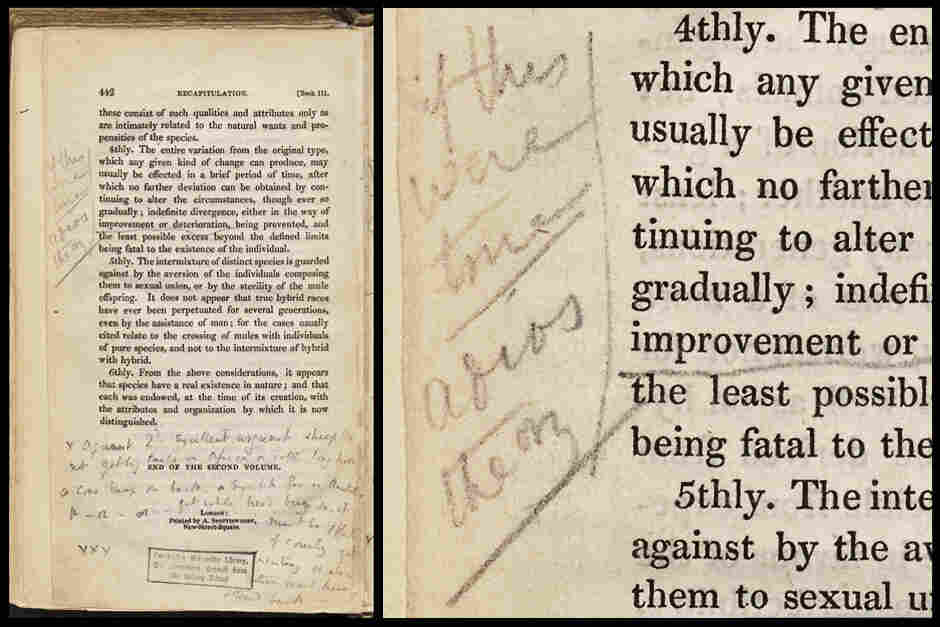 442 RECAPITULATION. [Book III.
these consist of such qualities and attributes only as
are intimately related to the natural wants and pro-
pensities of the species.
4thly. The entire variation from the original type,
which any given kind of change can produce, may
usually be effected in a brief period of time, after
which no farther deviation can be obtained by con-
tinuing to alter the circumstances, though ever so
gradually; indefinite divergence, either in the way of
improvement or deterioration, being prevented, and
the least possible excess beyond the defined limits
being fatal to the existence of the individual.
5thly. The intermixture of distinct species is guarded
against by the aversion of the individuals composing
them to sexual union, or by the sterility of the mule
offspring. It does not appear that true hybrid races
have ever been perpetuated for several generations,
even by the assistance of man; for the cases usually
cited relate to the crossing of mules with individuals
of pure species, and not to the intermixture of hybrid
with hybrid.
6thly. From the above considerations, it appears
that species have a real existence in nature; and that
each was endowed, at the time of its creation, with
the attributes and organization by which it is now
distinguished.
excellent argument sheep
END OF THE SECOND VOLUME.
LONDON:
Printed by A. SPOTTISWOODE,
New-Street-Square.
University Library,
if this
were
true
adios
theory
4thly. The en
which any given
usually be effect
which no farther
tinuing to alter
gradually; indefi
improvement or
the least possibl
being fatal to the
5thly. The inte
against by the av
them to sexual u